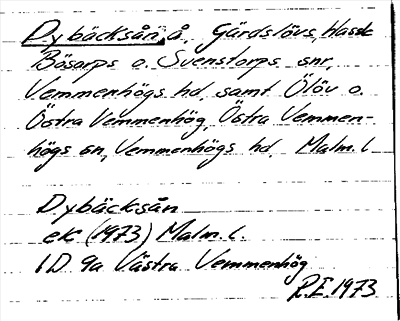 Dybäcksån, å, Gärdslövs, Hassle
Bösarps o. Svenstorps snr,
Vemmenhögs hd, samt Ölöv o.
Östra Vemmenhög, Östra Vemmen-
högs sn, Vemmenhögs hd, Malm. l
Dybäcksån
ek (1973) Malm. l.
1D 9a Västra Vemmenhög
R.E. 1973